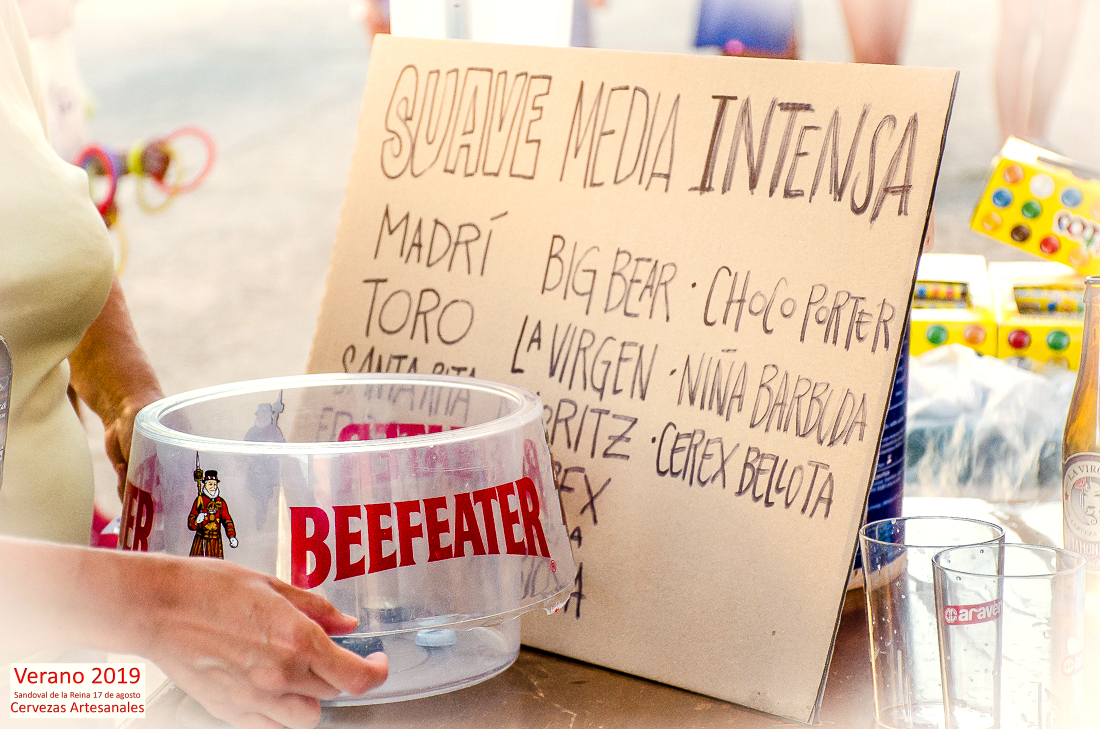 SUAVE MEDIA INTENSA
MADRÍ BIG BEAR · CHOCO PORTER
TORO LA VIRGEN · NIÑA BARBUDA
SANTA RITA RITZ · CEREX BELLOTA
BEEFEATER
ER
araven
LA VIRGEN
Verano 2019
Sandoval de la Reina 17 de agosto
Cervezas Artesanales